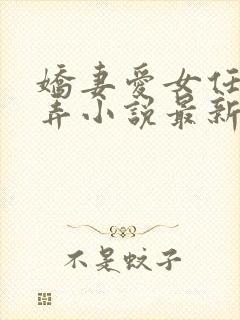 嬌妻愛女任
弄小說最新
不是蚊子